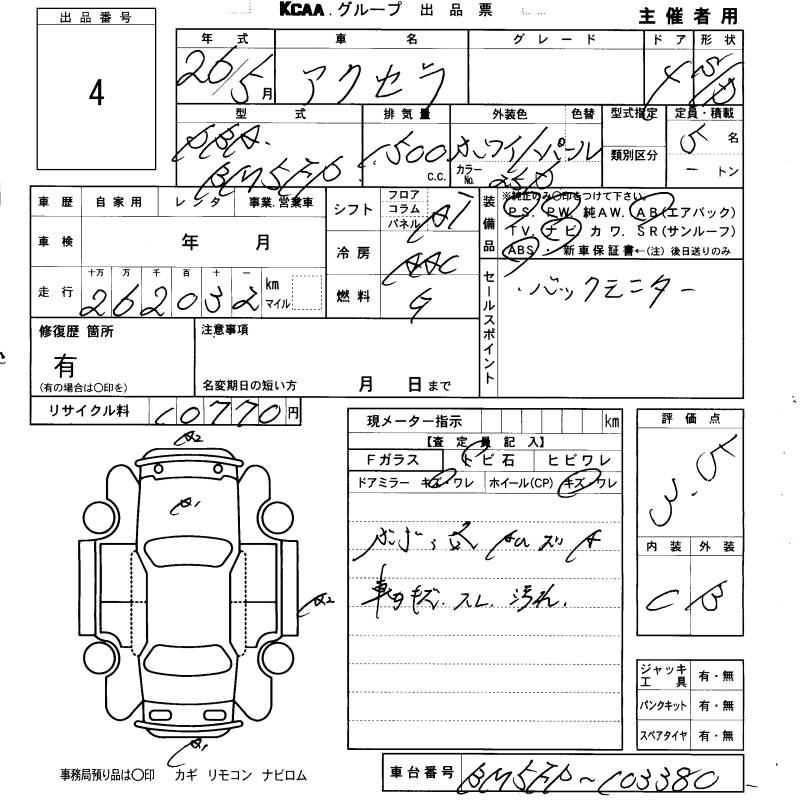 KCAA.グループ 出品票
主催者用
出品番号
4
年式 車名 グレード ドア 形状
26/5月 アクセラ 4
型式 排気量 外装色 色替 型式指定 定員・積載
DBA. 1500 c.c. ホワイトパール カラーNo. 25D 5名
BM5FP 類別区分 ートン
車歴 自家用 レンタ 事業.営業車
シフト フロア コラム パネル AT
装備品 ※純正のみ〇印をつけて下さい。
PS. PW 純AW. AB(エアバック)
TV. ナビ カワ. SR(サンルーフ)
ABS ・新車保証書←(注) 後日送りのみ
車検 年 月
冷房 AAC
走行 十万 万 千 百 十 一
262032 km マイル
燃料 G
セールスポイント
・バックモニター
修復歴 箇所
有
(有の場合は〇印を)
注意事項
名変期日の短い方 月 日まで
リサイクル料 10770円
現メーター指示 km
【査定員記入】
Fガラス トビ石 ヒビワレ
ドアミラー キズ・ワレ ホイール(CP) キズ・ワレ
評価点
3.5
内装 外装
C B
A2
A1
A2
A1
車内キズ. スレ. 汚れ.
ジャッキ工具 有・無
パンクキット 有・無
スペアタイヤ 有・無
事務局預り品は〇印 カギ リモコン ナビロム
車台番号 BM5FP~103380